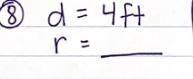 ⑧ d = 4ft
r = ____